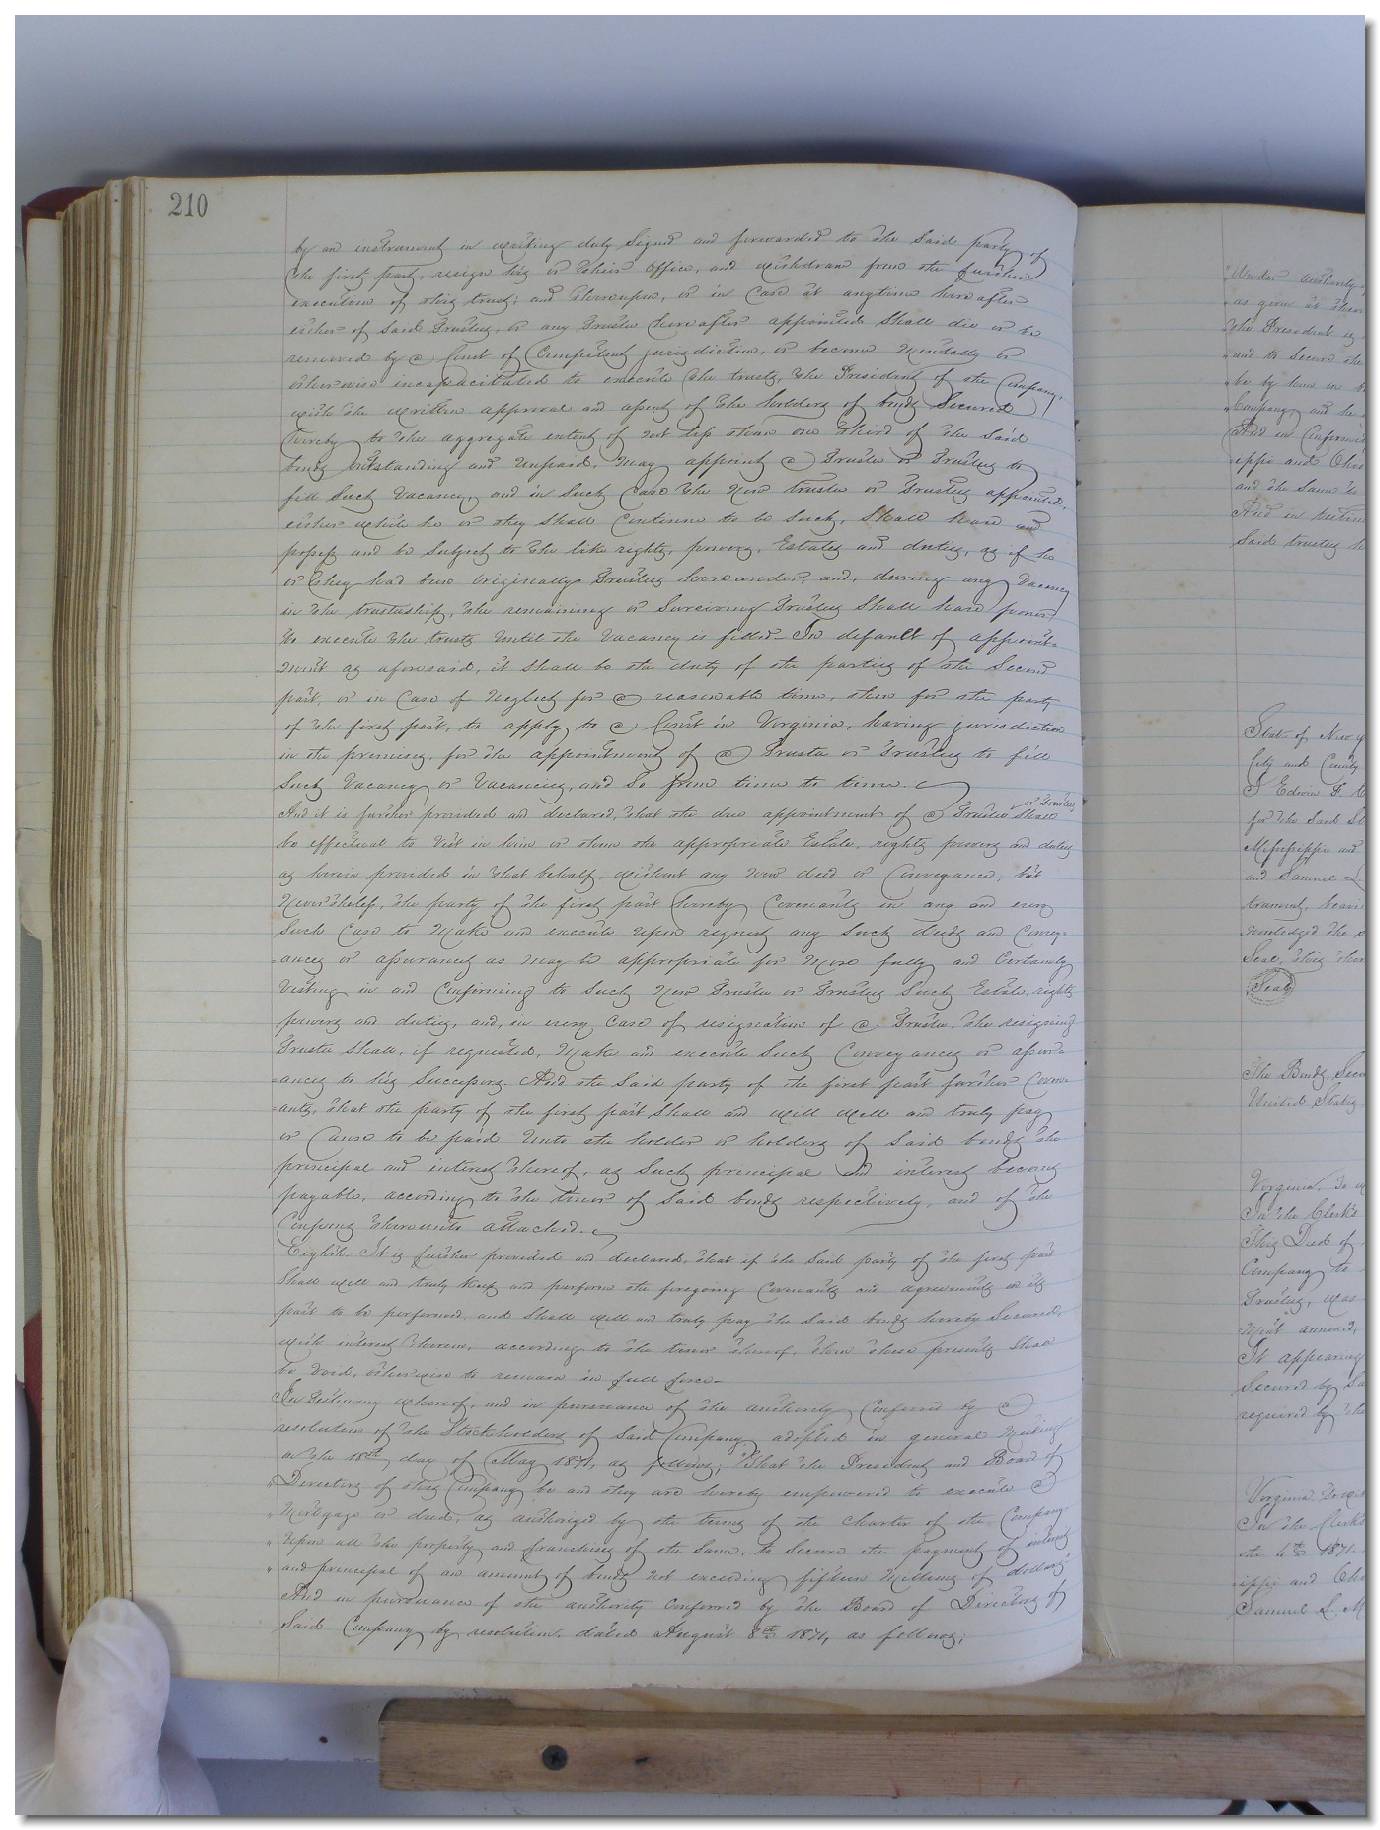 210
by an instrument in writing duly Signed and forwarded to the Said party of
the first part, resign his or their office, and withdraw from the further
execution of this trust; and thereupon, or in Case at anytime hereafter
either of Said Trustees, or any Trustee hereafter appointed Shall die or be
removed by a Court of Competent jurisdiction, or become Mentally or
otherwise incapacitated to execute the trusts, the President of the Company,
with the written approval and assent of the holders of bonds Secured
hereby to the aggregate extent of not less than one third of the Said
bonds outstanding and Unpaid, May appoint a Trustee or Trustees to
fill Such Vacancy, and in Such Case the New trustee or Trustees appointed,
either while he or they Shall Continue to be Such, Shall have and
possess and be Subject to the like rights, powers, Estates and duties, as if he
or they had been originally Trustees hereunder, and, during any Vacancy
in the trusteeship, the remaining or Surviving Trustees Shall have power
to execute the trusts Until the Vacancy is filled - In default of appoint-
ment as aforesaid, it Shall be the duty of the parties of the Second
part, or in Case of Neglect for a reasonable time, then for the party
of the first part, to apply to a Court in Virginia, having jurisdiction
in the premises, for the appointment of a Trustee or Trustees to fill
Such Vacancy or Vacancies, and So from time to time.
And it is further provided and declared, that the due appointment of a Trustee or Trustees Shall
be effectual to Vest in him or them the appropriate Estate, rights powers and duties
as herein provided in that behalf, without any New deed or Conveyance, but
Nevertheless, the party of the first part hereby Covenants in any and every
Such Case to Make and execute Upon request any Such deeds and Convey-
-ances or assurances as May be appropriate for More fully and Certainly
Vesting in and Confirming to Such New Trustee or Trustees Such Estate, rights
powers and duties, and, in every Case of resignation of a Trustee the resigning
Trustee Shall, if requested, Make and execute Such Conveyances or assur-
-ances to his Successors. And the Said party of the first part further Coven-
-ants, that the party of the first part Shall and will well and truly pay
or Cause to be paid Unto the holder or holders of Said bonds the
principal and interest thereof, as Such principal and interest become
payable, according to the tenor of Said bonds respectively, and of the
Coupons thereunto attached.
Eighth It is further provided and declared, that if the Said party of the first part
Shall well and truly Keep and perform the foregoing Covenants and agreements on its
part to be performed, and Shall well and truly pay the Said bonds hereby Secured,
with interest thereon, according to the tenor thereof, then these presents Shall
be Void, otherwise to remain in full force -
In Testimony whereof, and in pursuance of the authority Conferred by a
resolution of the Stockholders of Said Company adopted in general Meeting
on the 18th day of May 1871, as follows; "That the President and Board of
" Directors of this Company be and they are hereby empowered to execute a
" Mortgage or deed, as authorized by the terms of the Charter of the Company
" Upon all the property and franchises of the Same, to Secure the payment of interest
" and principal of an amount of bonds not exceeding fifteen Millions of dollars"
And in pursuance of the authority Conferred by the Board of Directors of
Said Company by resolution, dated August 8th 1871, as follows;
as given at
the President
and to Secure the
be by him in
Company, and he
And in Conformi
ippi and Ohio
and the Same to
And in
Said trustees
State of New
City and County
I Edwin F.
for the Said St
Mississippi and
and Samuel
trument, bear
nowledged the
Seal, this
Seal
The Bonds Secu
United States
Virginia, To
In the Clerk's
This Deed of
Company to
Trustees, was
-ment annexed,
It appearing
Secured by
required by the
Virginia
In the Clerk's
the 1871.
ippi and Ohio
Samuel L. M